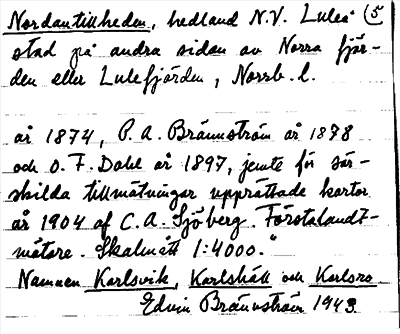 Nordantillheden, hedland N.V. Luleå (5
stad på andra sidan av Norra fjär-
den eller Lulefjärden, Norrb. l.
år 1874, P. A. Brännström år 1878
och O. F. Dahl år 1897, jemte för sär-
skilda tillmätningar upprättade kartor
år 1904 af C. A. Sjöberg. Förstalandt-
mätare. Skalmått 1:4000."
Namnen Karlsvik, Karlshäll och Karlsro
Edvin Brännström 1943.